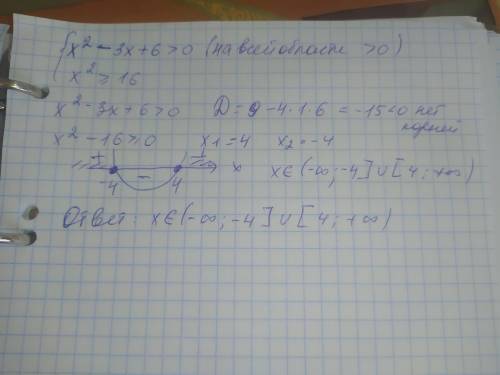 { x² - 3x + 6 > 0 (на всей области > 0)
x² ≥ 16
x² - 3x + 6 > 0 D = 9 - 4·1·6 = -15 < 0 нет корней
x² - 16 ≥ 0 x1 = 4 x2 = -4
+ - + x
-4 4 x∈(-∞; -4]∪[4; +∞)
Ответ: x∈(-∞; -4]∪[4; +∞)